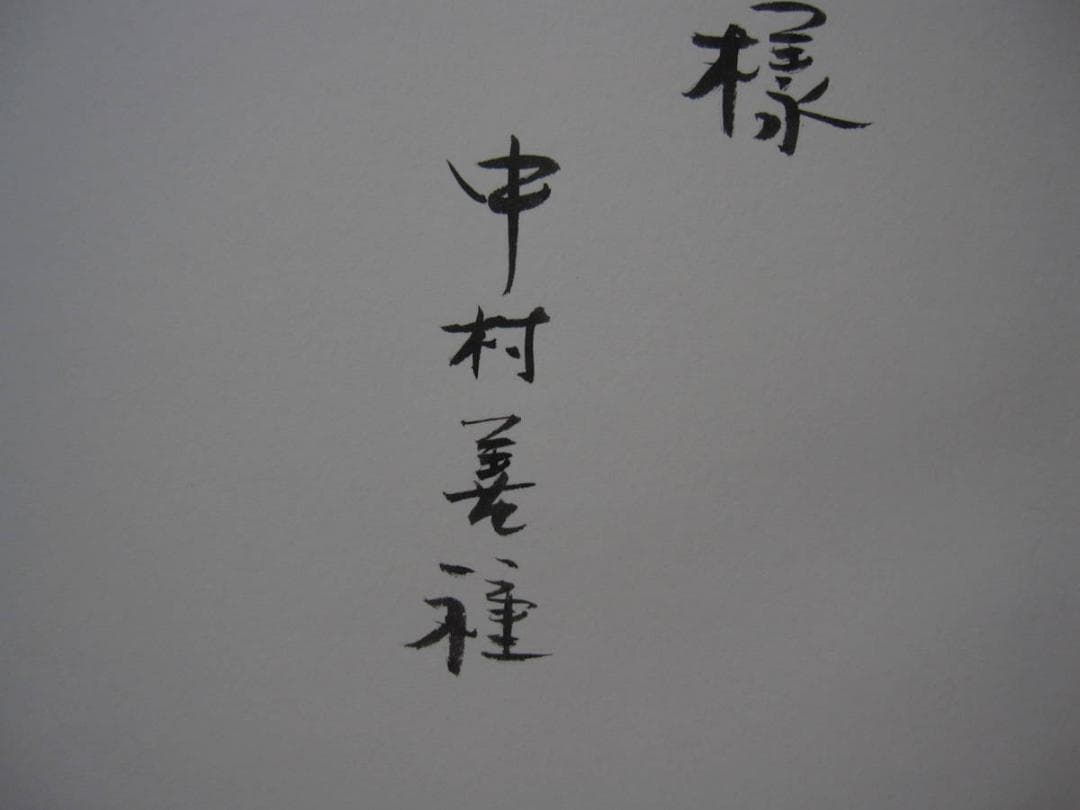 様
中村善種